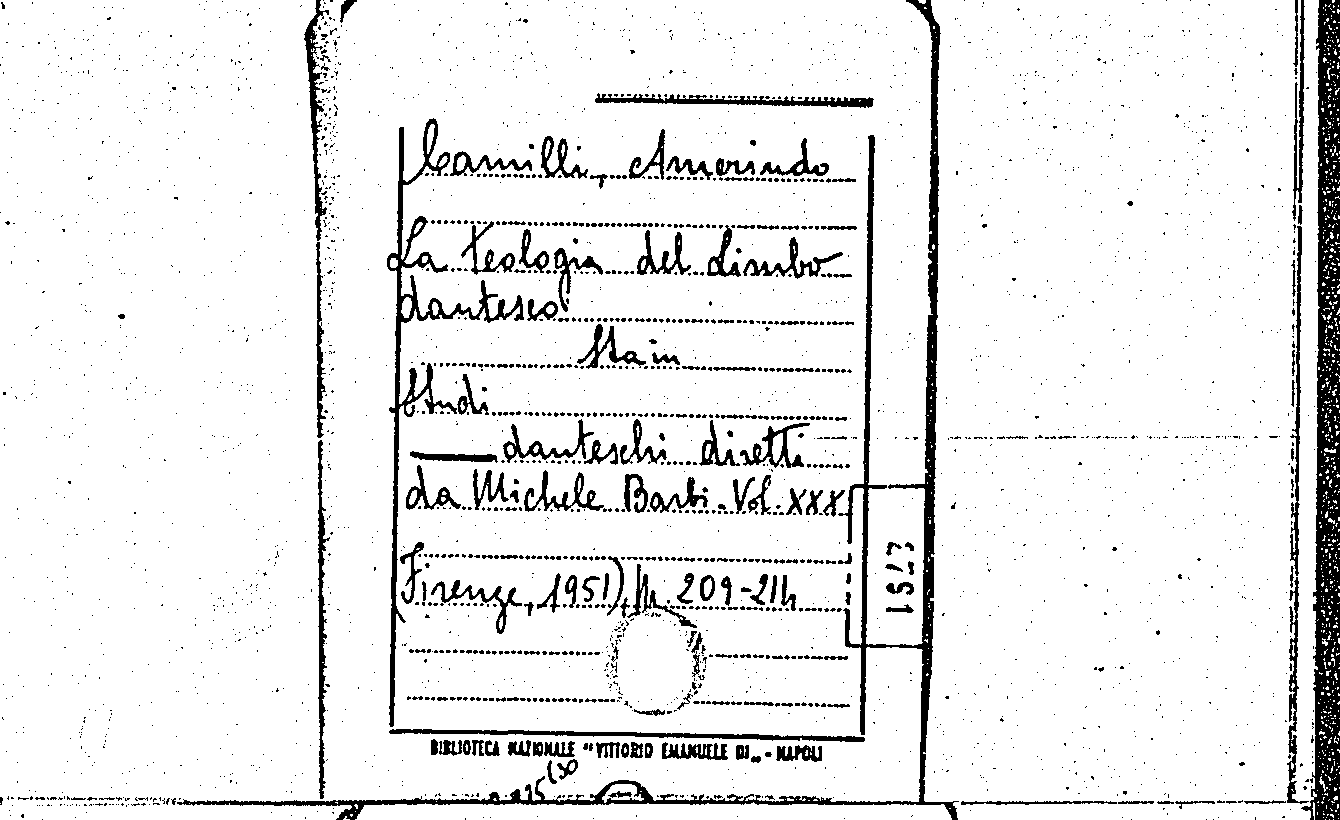 Camilli, Amerindo
La teologia del Limbo
dantesco
Sta in
Studi
danteschi diretti
da Michele Barbi. Vol. XXX
(Firenze, 1951), pp. 209-214
BIBLIOTECA NAZIONALE "VITTORIO EMANUELE III„ - NAPOLI